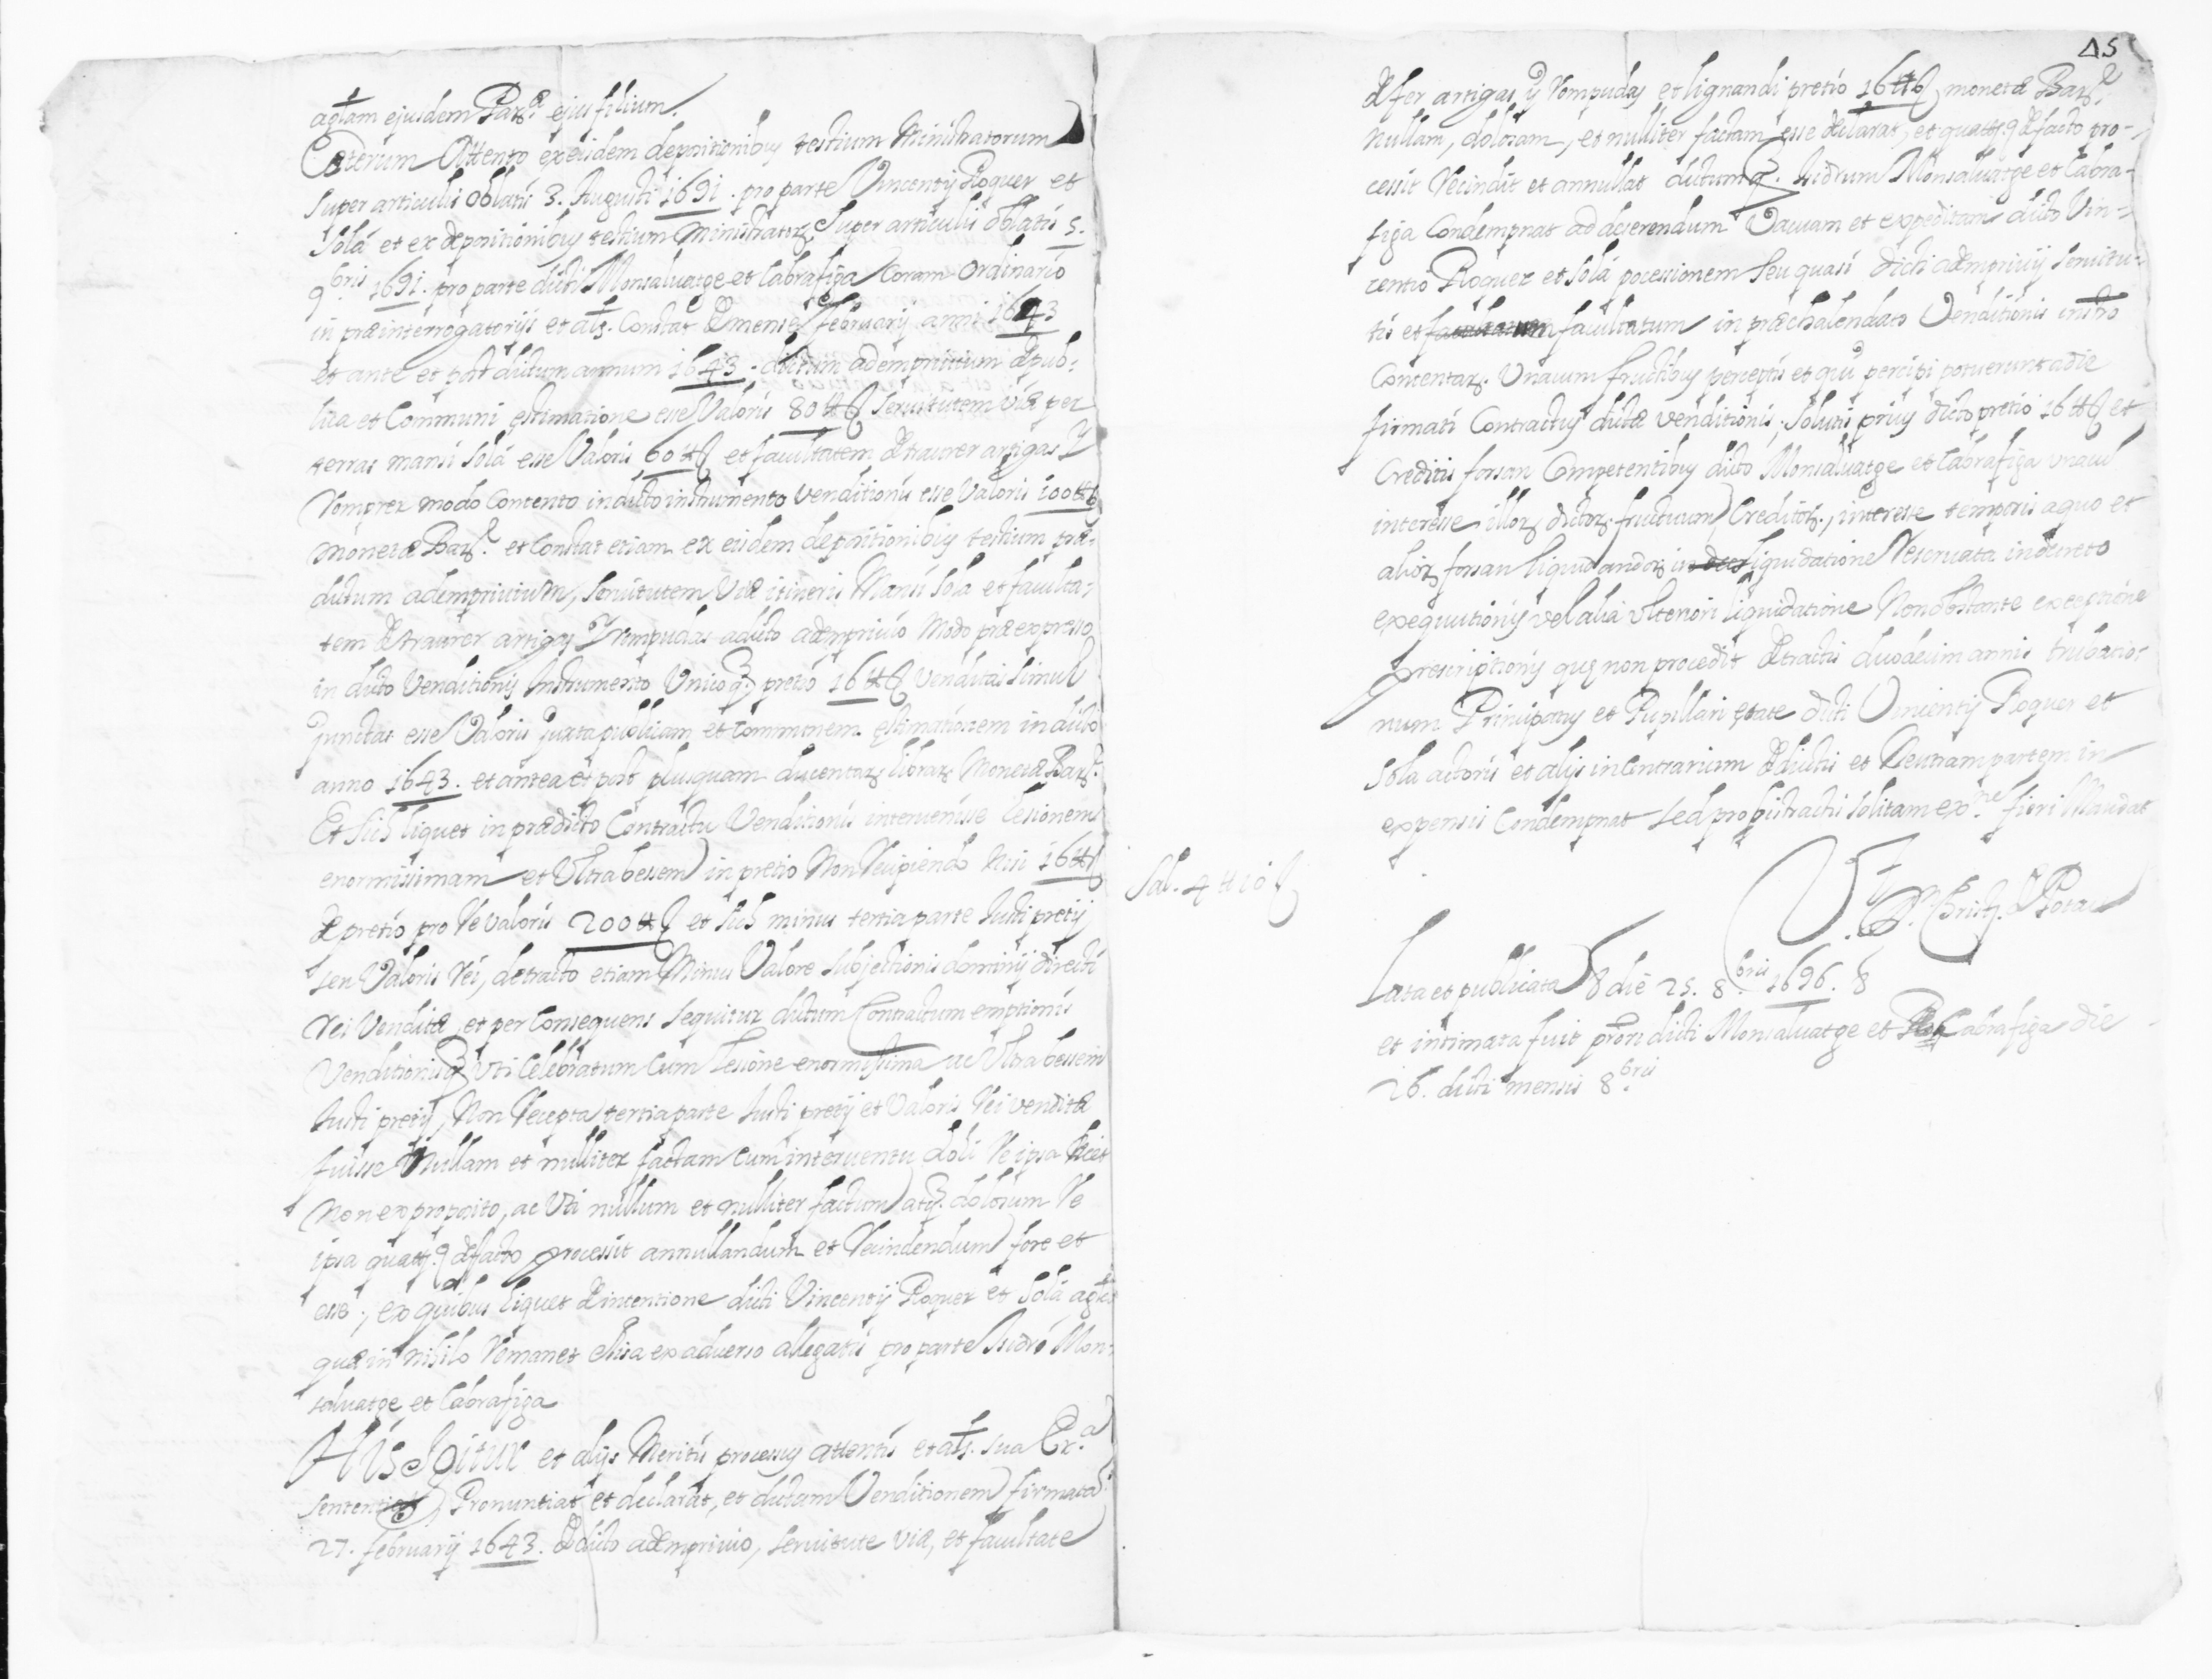 agtam ejusdem Parts. ejus filium.
Cæterum Attento ex eisdem depositionibus testium Ministratorum
super articulis oblatis 3. Augusti 1691. pro parte Vincentij Roquer et
Solá et ex depositionibus testium Ministrator. super articulis oblatis 5.
9bris 1691. pro parte dicti Monsaluatge et Cabrafiga Coram Ordinario
in præinterrogatorijs et als. Constat de mense februarij anni 1643
et ante et post dictum annum 1643. dictum ademprivium de pub-
lica et Communi estimatione esse Valoris 80 ℔ servitutem viæ per
terras mansi Solá esse Valoris 60 ℔ et facultatem de traurer artigas y
Romprer modo Contento in dicto instrumento venditionis esse Valoris 100 ℔
monetæ Bar. et Constat etiam ex eisdem depositionibus testium præ-
dictum ademprivium, servitutem Viæ itineris Mansi Sola et faculta-
tem de traurer artigas y rompudas a dicto ademprivio modo præexpresso
in dicto Venditionis Instrumento Unicoq. pretio 16 ℔ venditas simul
junctas esse Valoris juxta publicam et Communem estimationem in dicto
anno 1643. et antea et post plusquam ducentar. librar. Monetæ Bar.
Et sich liquet in prædicto Contractu Venditionis intervenisse lesionem
enormissimam et Ultra bessem in pretio Non Recipiendo nisi 16 ℔
de pretio pro re valoris 200 ℔ et sich minus tertia parte Justi pretij
seu Valoris rei, detracto etiam Minus Valore subjectionis dominij directi
rei Venditæ et per Consequens sequitur dictum Contractum emptionis
Venditionisq. Uti Celebratum Cum lesione enormissima ac Ultra bessem
Justi pretij, Non Recepta tertia parte Justi pretij et Valoris Rei venditæ
fuisse Nullam et nulliter factam Cum interventu doli Re ipsa licet
Non ex proposito, ac Uti nullum et nulliter factum atq. dolosum Re
ipsa quats. de facto processit annullandum et Recindendum fore et
esse; ex quibus liquet de intentione dicti Vincentij Roquer et Solá agtis
quæ in Nihilo Remanet elisa ex adverso allegatis pro parte Isidro Mon-
saluatge et Cabrafiga
His Igitur et alijs Meritis processus attentis et als. sua Exa.
sententiat Pronuntiat et declarat, et dictam Venditionem firmatã
27. februarij 1643. de dicto ademprivio, servitute viæ, et facultate
Sal. 4 ℔ 10
45
de fer artigas y Rompudas et lignandi pretio 16 ℔ monetæ Bar.
nullam, dolosam, et nulliter factam esse declarat, et quats. de facto pro-
cessit Recindit et annullat dictumq. Isidrum Monsaluatge et Cabra-
figa Condempnat ad deserendum Vacuam et expeditam dicto Vin-
centio Roquer et Solá pocessionem seu quasi dicti ademprivij servitu-
tis et facultatum facultatum in præchalendato Venditionis instro
Contentar. Unacum fructibus perceptis et qui percipi potuerunt a die
firmati Contractus dictæ venditionis, Solutis prius dicto pretio 16 ℔ et
Creditis forsan Competentibus dicto Monsaluatge et Cabrafiga unacũ
interesse illor. dictor. fructuum Creditor., interesse temporis a quo et
alior. forsan liquidandor. in liquidatione Reservata in decreto
exequutionis vel alia Ulteriori liquidatione Non obstante exceptione
prescriptionis que non procedit detractis duodecim annis turbatio-
num Principatus et Pupillari etate dicti Vincentij Roquer et
Sola actoris et alijs in Contrarium deductis et Neutram partem in
expensis Condempnat sed pro pistractis solitam exne. fieri Mandat
Vt. Dr. Christ. de Potau
Lata et publicata 8 die 25. 8bris 1696. 8
et intimata fuit prori dicti Monsaluatge et Cabrafiga die
26. dicti mensis 8bris